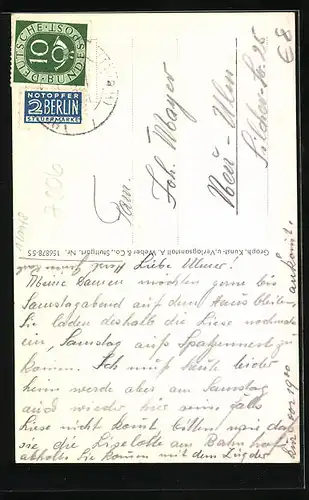 DEUTSCHE BUNDESPOST
10
NOTOPFER
2 BERLIN
STEUERMARKE
Fam.
Joh. Mayer
Neu-Ulm
Silcher-Str. 26
€8
Graph. Kunst- u. Verlagsanstalt A. Weber & Co., Stuttgart. Nr. 156878-55
Liebe Ulmer!
Meine Damen möchten gerne bis
Samstagabend auf dem Haus bleiben
Sie laden deshalb die Liese nochmals
ein, Samstag aufs Spatzennest zu
kommen. Ich muß heute leider
heim werde aber am Samstag
auch wieder hier seine falls
Liese nicht komt, bitten wir daß
sie die Liselotte am Bahnhof
abholt. Sie kommen mit dem Zug der
ankomt.